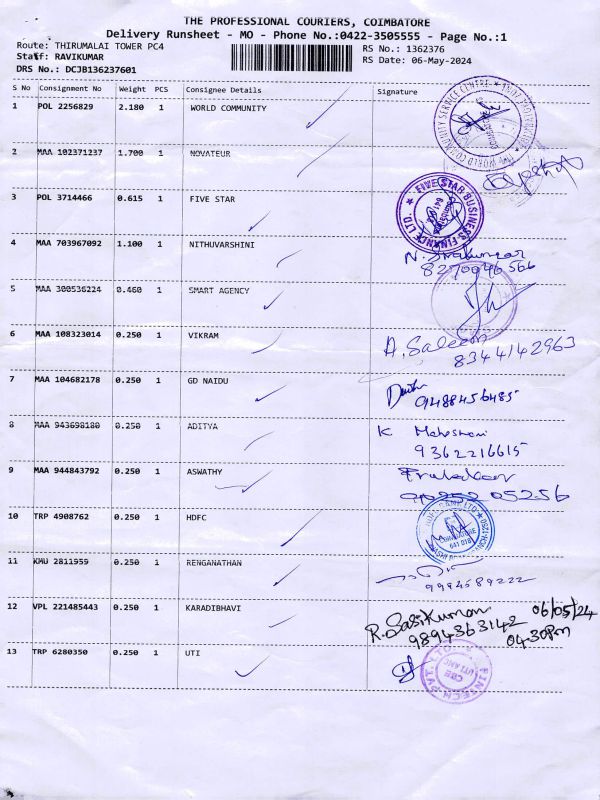 THE PROFESSIONAL COURIERS, COIMBATORE
Delivery Runsheet - MO - Phone No.:0422-3505555 - Page No.:1
Route: THIRUMALAI TOWER PC4
RS No.: 1362376
Staff: RAVIKUMAR
RS Date: 06-May-2024
DRS No.: DCJB136237601
S No Consignment No Weight PCS Consignee Details Signature
1 POL 2256829 2.180 1 WORLD COMMUNITY
2 MAA 102371237 1.700 1 NOVATEUR
3 POL 3714466 0.615 1 FIVE STAR
FIVE STAR BUSINESS FINANCE LTD.
4 MAA 703967092 1.100 1 NITHUVARSHINI
8270946566
5 MAA 300536224 0.460 1 SMART AGENCY
6 MAA 108323014 0.250 1 VIKRAM
A. Saleem
8344142963
7 MAA 104682178 0.250 1 GD NAIDU
9488456485
8 MAA 943698180 0.250 1 ADITYA
K
9362216615
9 MAA 944843792 0.250 1 ASWATHY
10 TRP 4908762 0.250 1 HDFC
11 KMU 2811959 0.250 1 RENGANATHAN
9994589222
12 VPL 221485443 0.250 1 KARADIBHAVI
R. Sasikumar 06/05/24
9894363142 04.30Pm
13 TRP 6280350 0.250 1 UTI